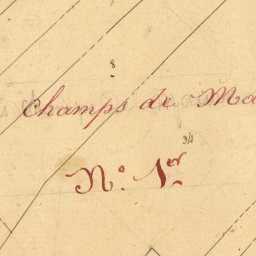 8
Champs de Ma
34
N.º 1.er